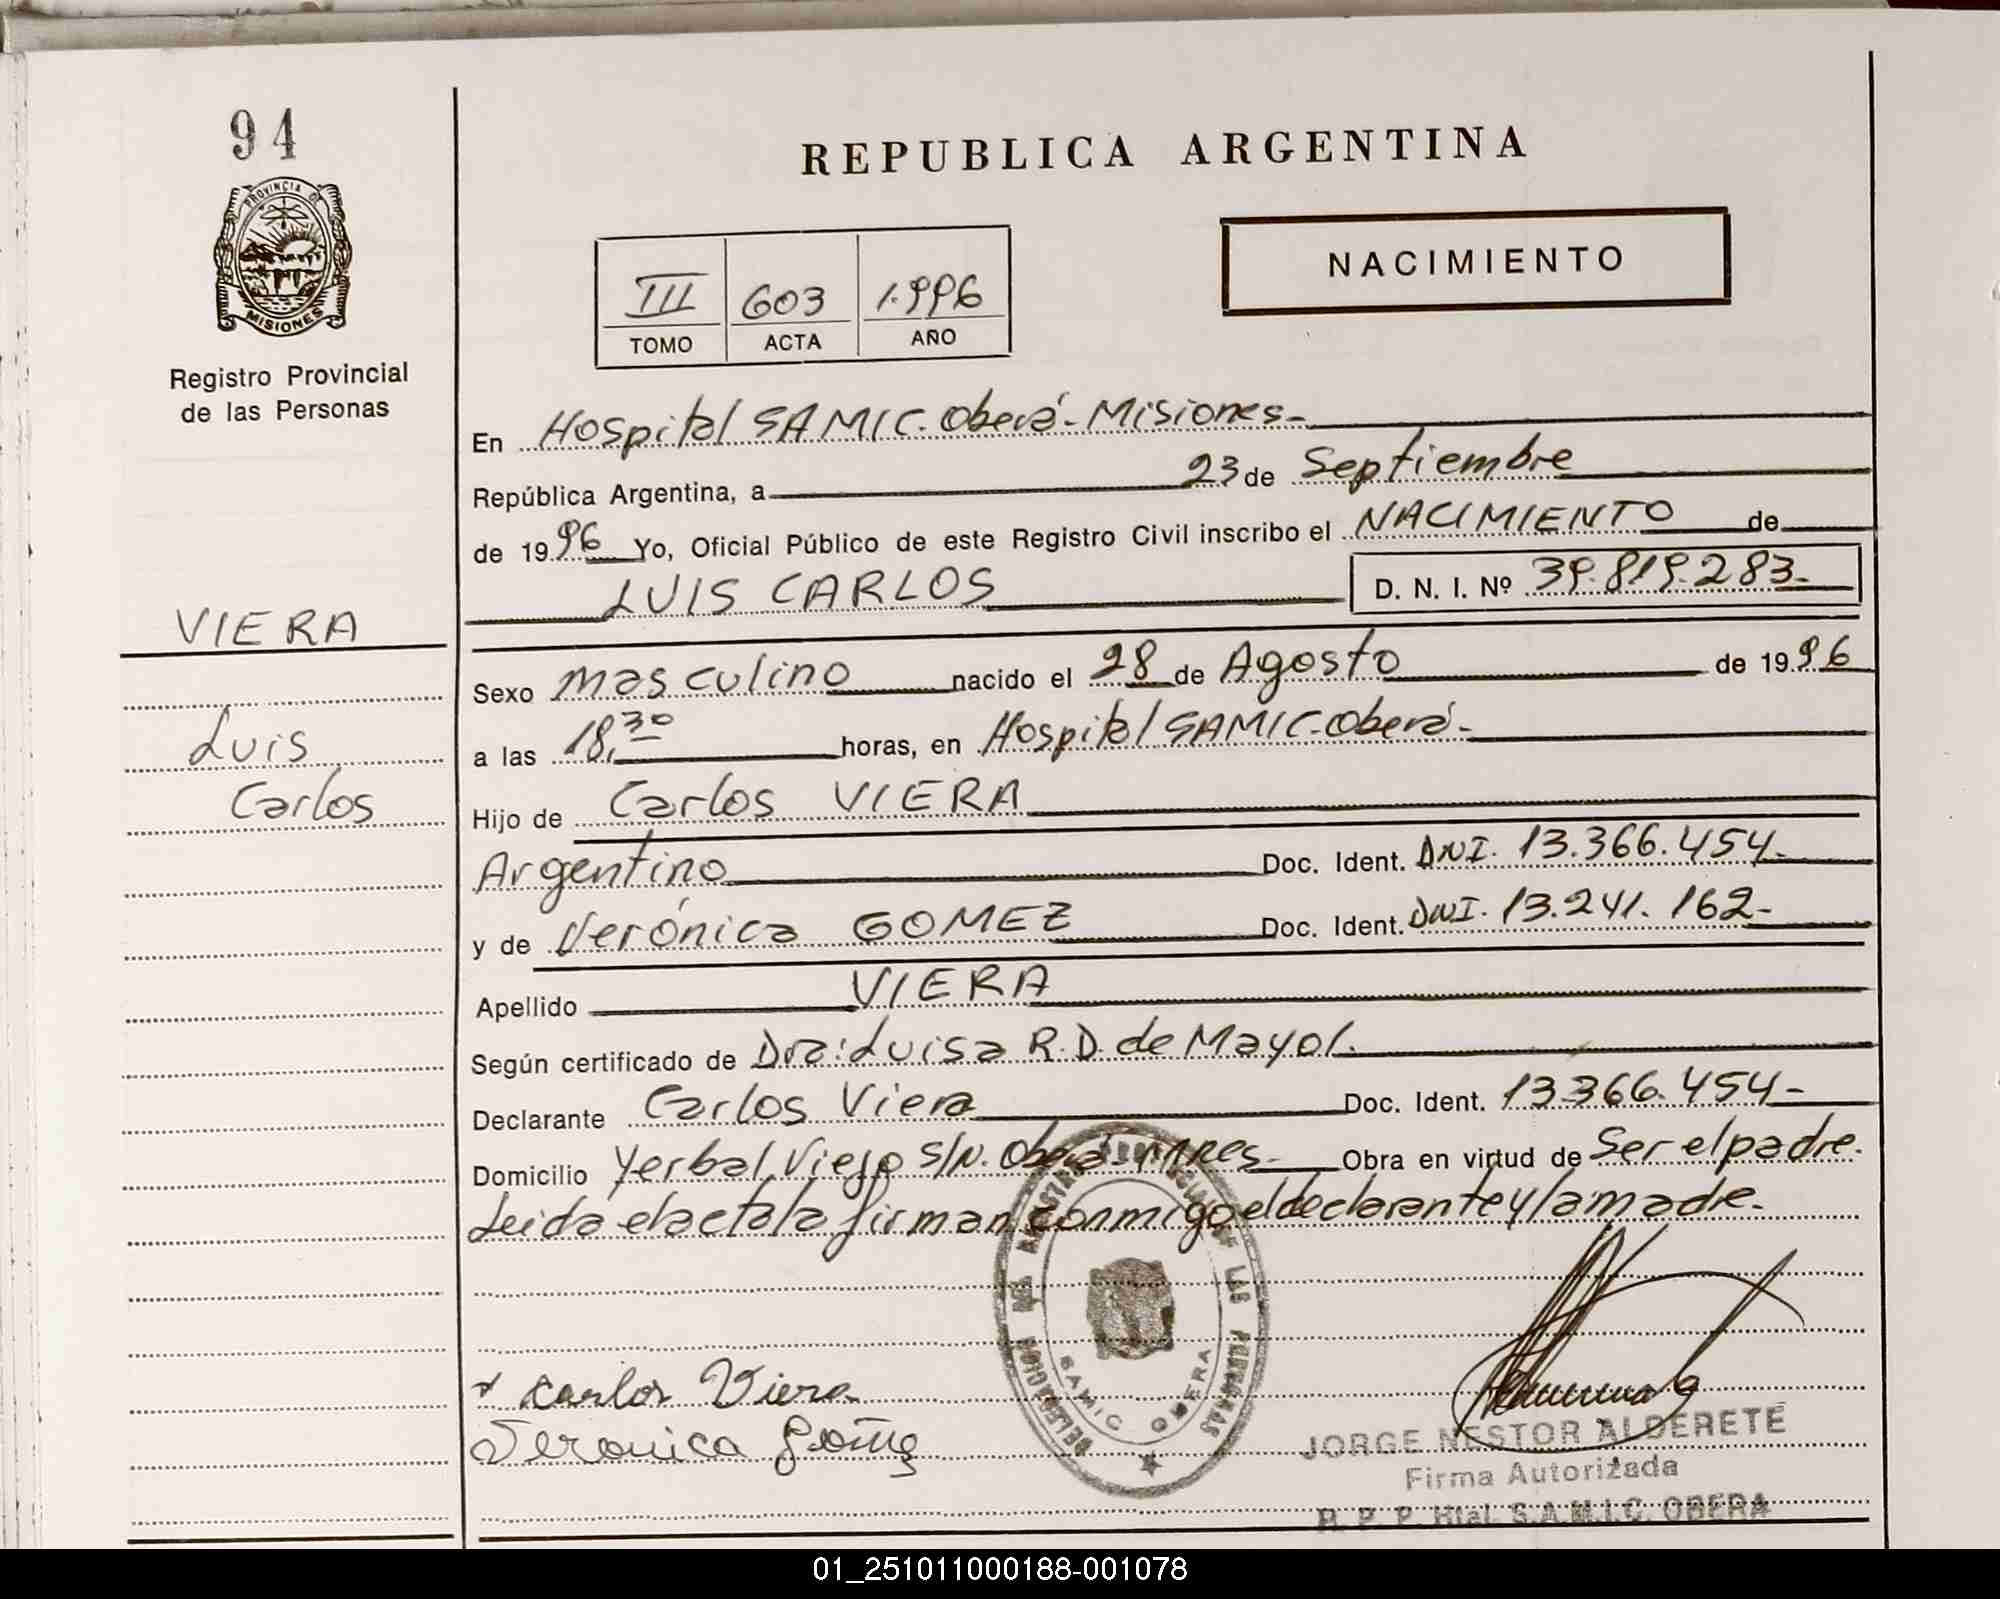 94
PROVINCIA DE
MISIONES
Registro Provincial
de las Personas
VIERA
Luis
Carlos
REPUBLICA ARGENTINA
NACIMIENTO
III 603 1.996
TOMO ACTA AÑO
En Hospital SAMIC. Oberá-Misiones-
República Argentina, a 23 de Septiembre
de 1996 Yo, Oficial Público de este Registro Civil inscribo el NACIMIENTO de
LUIS CARLOS D. N. I. Nº 39.819.283-
Sexo masculino nacido el 28 de Agosto de 1996
a las 18,30 horas, en Hospital SAMIC-Oberá-
Hijo de Carlos VIERA
Argentino Doc. Ident. DNI. 13.366.454-
y de Verónica GOMEZ Doc. Ident. DNI. 13.241.162-
Apellido VIERA
Según certificado de Dra: Luisa R.D. de Mayol.
Declarante Carlos Viera Doc. Ident. 13.366.454-
Domicilio Yerbal Viejo S/N. Oberá-Mnes- Obra en virtud de Ser el padre.
Leida el acta la firman conmigo el declarante y la madre.
DELEGACION DEL REGISTRO PROVINCIAL DE LAS PERSONAS
SAMIC OBERA
Carlos Viera
Veronica Gomez
JORGE NESTOR ALDERETE
Firma Autorizada
R. P. P. Htal. S.A.M.I.C. OBERA
01_251011000188-001078